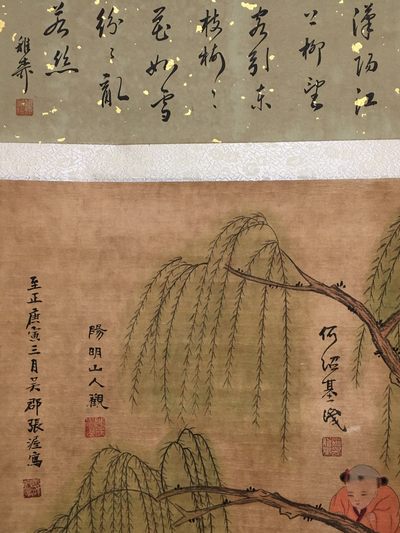 漢陽江
上柳望
客引東
枝樹〻
花如雪
紛〻亂
若絲
何紹基識
陽明山人觀
至正庚寅三月吴郡張渥寫